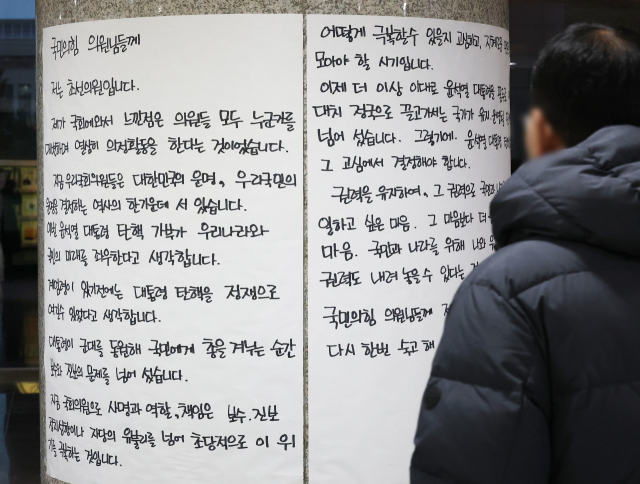 국민의힘 의원님들께
저는 초선의원입니다.
제가 국회에와서 느낀점은 의원들 모두 누군가를
대변하며 열심히 의정활동을 한다는 것이었습니다.
지금 우리국회의원들은 대한민국의 운명, 우리국민의
운명을 결정하는 역사의 한가운데 서 있습니다.
이번 윤석열 대통령 탄핵 가부가 우리나라와
국민의 미래를 좌우한다고 생각합니다.
계엄령이 있기전에는 대통령 탄핵을 정쟁으로
여길수 있었다고 생각합니다.
대통령이 군대를 동원해 국민에게 총을 겨누는 순간
보수와 진보의 문제를 넘어 섰습니다.
지금 국회의원으로 사명과 역할, 책임은 보수.진보
정치성향이나 지당의 유불리를 넘어 초당적으로 이 위
기를 극복하는 것입니다.
어떻게 극복할수 있을지 고심하고, 지혜를
모아야 할 시기입니다.
이제 더 이상 이대로 윤석열 대통령을
대치 정국으로 끌고가서는 국가가
넘어 섰습니다. 그렇기에, 윤석열 대통령
그 고심에서 결정해야 합니다.
권력을 유지하여, 그 권력으로
일하고 싶은 마음. 그 마음보다 더
마음. 국민과 나라를 위해 나와
권력도 내려 놓을수 있다는
국민의힘 의원님들께
다시 한번 숙고 해